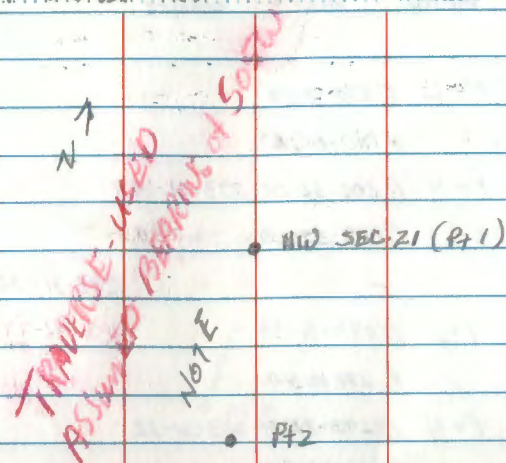 N
TRAVERSE-USED
ASSUMED BEARING of
NW SEC. 21 (Pt 1)
NOTE
Pt 2